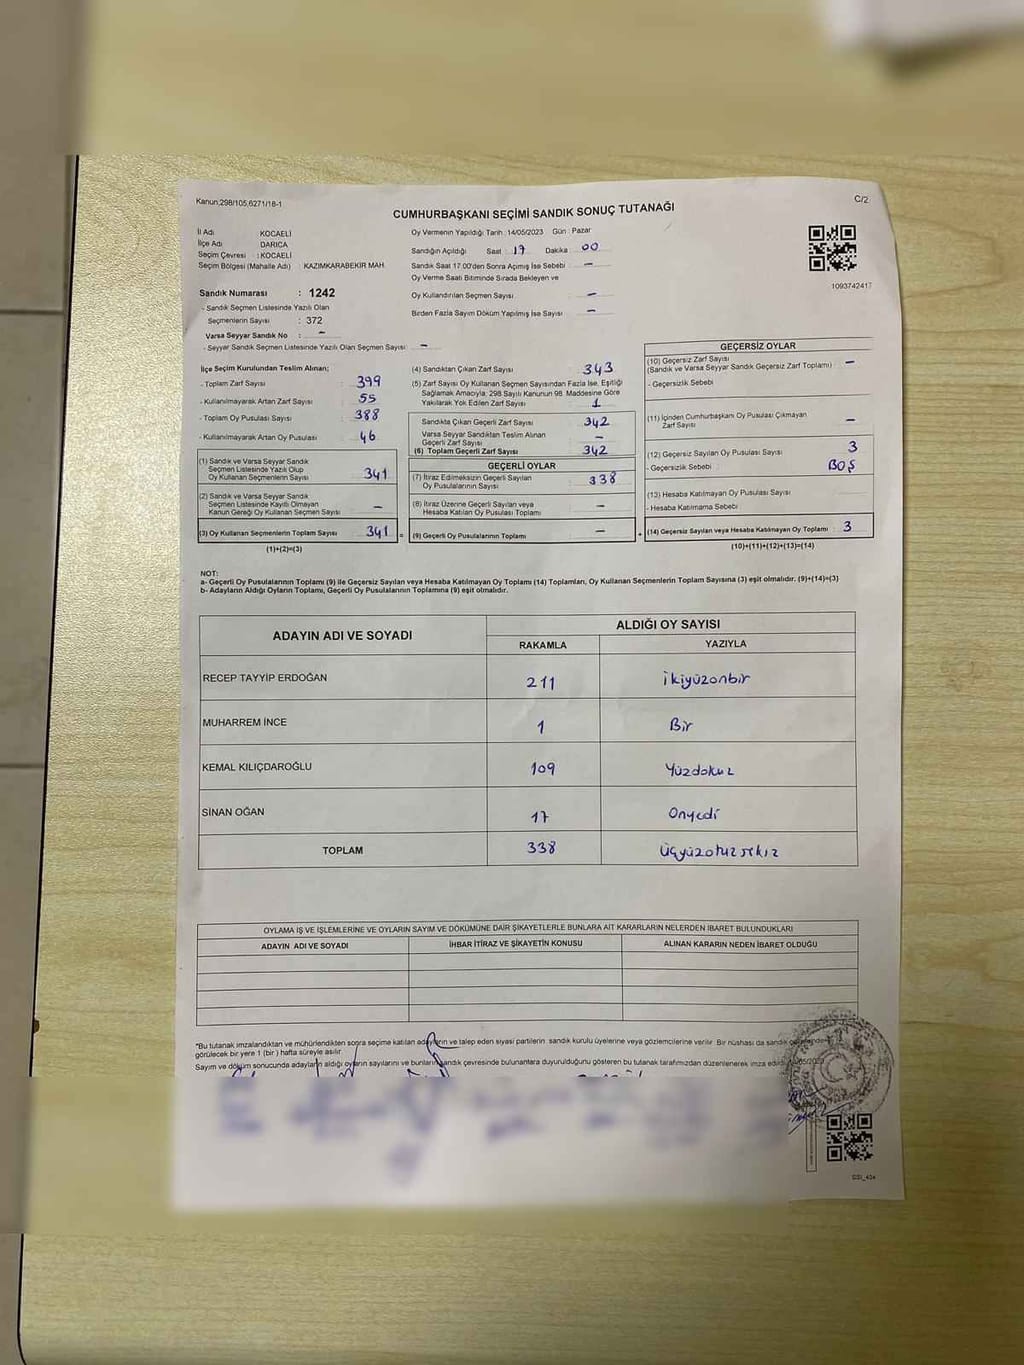 Kanun;298/105,6271/18-1
C/2
CUMHURBAŞKANI SEÇİMİ SANDIK SONUÇ TUTANAĞI
İl Adı KOCAELİ
İlçe Adı DARICA
Seçim Çevresi : KOCAELİ
Seçim Bölgesi (Mahalle Adı) : KAZIMKARABEKİR MAH.
Sandık Numarası : 1242
- Sandık Seçmen Listesinde Yazılı Olan
Seçmenlerin Sayısı : 372
Varsa Seyyar Sandık No : -
- Seyyar Sandık Seçmen Listesinde Yazılı Olan Seçmen Sayısı -
Oy Vermenin Yapıldığı Tarih : 14/05/2023 Gün : Pazar
Sandığın Açıldığı Saat : 17 Dakika : 00
Sandık Saat 17.00'den Sonra Açımış İse Sebebi : -
Oy Verme Saati Bitiminde Sırada Bekleyen ve
Oy Kullandırılan Seçmen Sayısı -
Birden Fazla Sayım Döküm Yapılmış İse Sayısı -
1093742417
İlçe Seçim Kurulundan Teslim Alınan;
- Toplam Zarf Sayısı : 399
- Kullanılmayarak Artan Zarf Sayısı : 55
- Toplam Oy Pusulası Sayısı : 388
- Kullanılmayarak Artan Oy Pusulası : 46
(1) Sandık ve Varsa Seyyar Sandık
Seçmen Listesinde Yazılı Olup
Oy Kullanan Seçmenlerin Sayısı 341
(2) Sandık ve Varsa Seyyar Sandık
Seçmen Listesinde Kayıtlı Olmayan
Kanun Gereği Oy Kullanan Seçmen Sayısı -
(3) Oy Kullanan Seçmenlerin Toplam Sayısı 341 =
(1)+(2)=(3)
(4) Sandıktan Çıkan Zarf Sayısı : 343
(5) Zarf Sayısı Oy Kullanan Seçmen Sayısından Fazla İse, Eşitliği
Sağlamak Amacıyla; 298 Sayılı Kanunun 98. Maddesine Göre
Yakılarak Yok Edilen Zarf Sayısı : 1
Sandıkta Çıkan Geçerli Zarf Sayısı 342
Varsa Seyyar Sandıktan Teslim Alınan
Geçerli Zarf Sayısı -
(6) Toplam Geçerli Zarf Sayısı 342
GEÇERLİ OYLAR
(7) İtiraz Edilmeksizin Geçerli Sayılan
Oy Pusulalarının Sayısı 338
(8) İtiraz Üzerine Geçerli Sayılan veya
Hesaba Katılan Oy Pusulası Toplamı -
(9) Geçerli Oy Pusulalarının Toplamı - +
GEÇERSİZ OYLAR
(10) Geçersiz Zarf Sayısı
(Sandık ve Varsa Seyyar Sandık Geçersiz Zarf Toplamı) : -
- Geçersizlik Sebebi
(11) İçinden Cumhurbaşkanı Oy Pusulası Çıkmayan
Zarf Sayısı -
(12) Geçersiz Sayılan Oy Pusulası Sayısı 3
- Geçersizlik Sebebi : BOŞ
(13) Hesaba Katılmayan Oy Pusulası Sayısı
- Hesaba Katılmama Sebebi
(14) Geçersiz Sayılan veya Hesaba Katılmayan Oy Toplamı : 3
(10)+(11)+(12)+(13)=(14)
NOT:
a- Geçerli Oy Pusulalarının Toplamı (9) ile Geçersiz Sayılan veya Hesaba Katılmayan Oy Toplamı (14) Toplamları, Oy Kullanan Seçmenlerin Toplam Sayısına (3) eşit olmalıdır. (9)+(14)=(3)
b- Adayların Aldığı Oyların Toplamı, Geçerli Oy Pusulalarının Toplamına (9) eşit olmalıdır.
ADAYIN ADI VE SOYADI ALDIĞI OY SAYISI
RAKAMLA YAZIYLA
RECEP TAYYİP ERDOĞAN 211 ikiyüzonbir
MUHARREM İNCE 1 Bir
KEMAL KILIÇDAROĞLU 109 Yüzdokuz
SİNAN OĞAN 17 Onyedi
TOPLAM 338 Üçyüzotuzsekiz
OYLAMA İŞ VE İŞLEMLERİNE VE OYLARIN SAYIM VE DÖKÜMÜNE DAİR ŞİKAYETLERLE BUNLARA AİT KARARLARIN NELERDEN İBARET BULUNDUKLARI
ADAYIN ADI VE SOYADI İHBAR İTİRAZ VE ŞİKAYETİN KONUSU ALINAN KARARIN NEDEN İBARET OLDUĞU
*Bu tutanak imzalandıktan ve mühürlendikten sonra seçime katılan adayların ve talep eden siyasi partilerin sandık kurulu üyelerine veya gözlemcilerine verilir. Bir nüshası da sandık
görülecek bir yere 1 (bir) hafta süreyle asılır.
Sayım ve döküm sonucunda adayların aldığı oyların sayılarını ve bunların sandık çevresinde bulunanlara duyurulduğunu gösteren bu tutanak tarafımızdan düzenlenerek imza edildi.